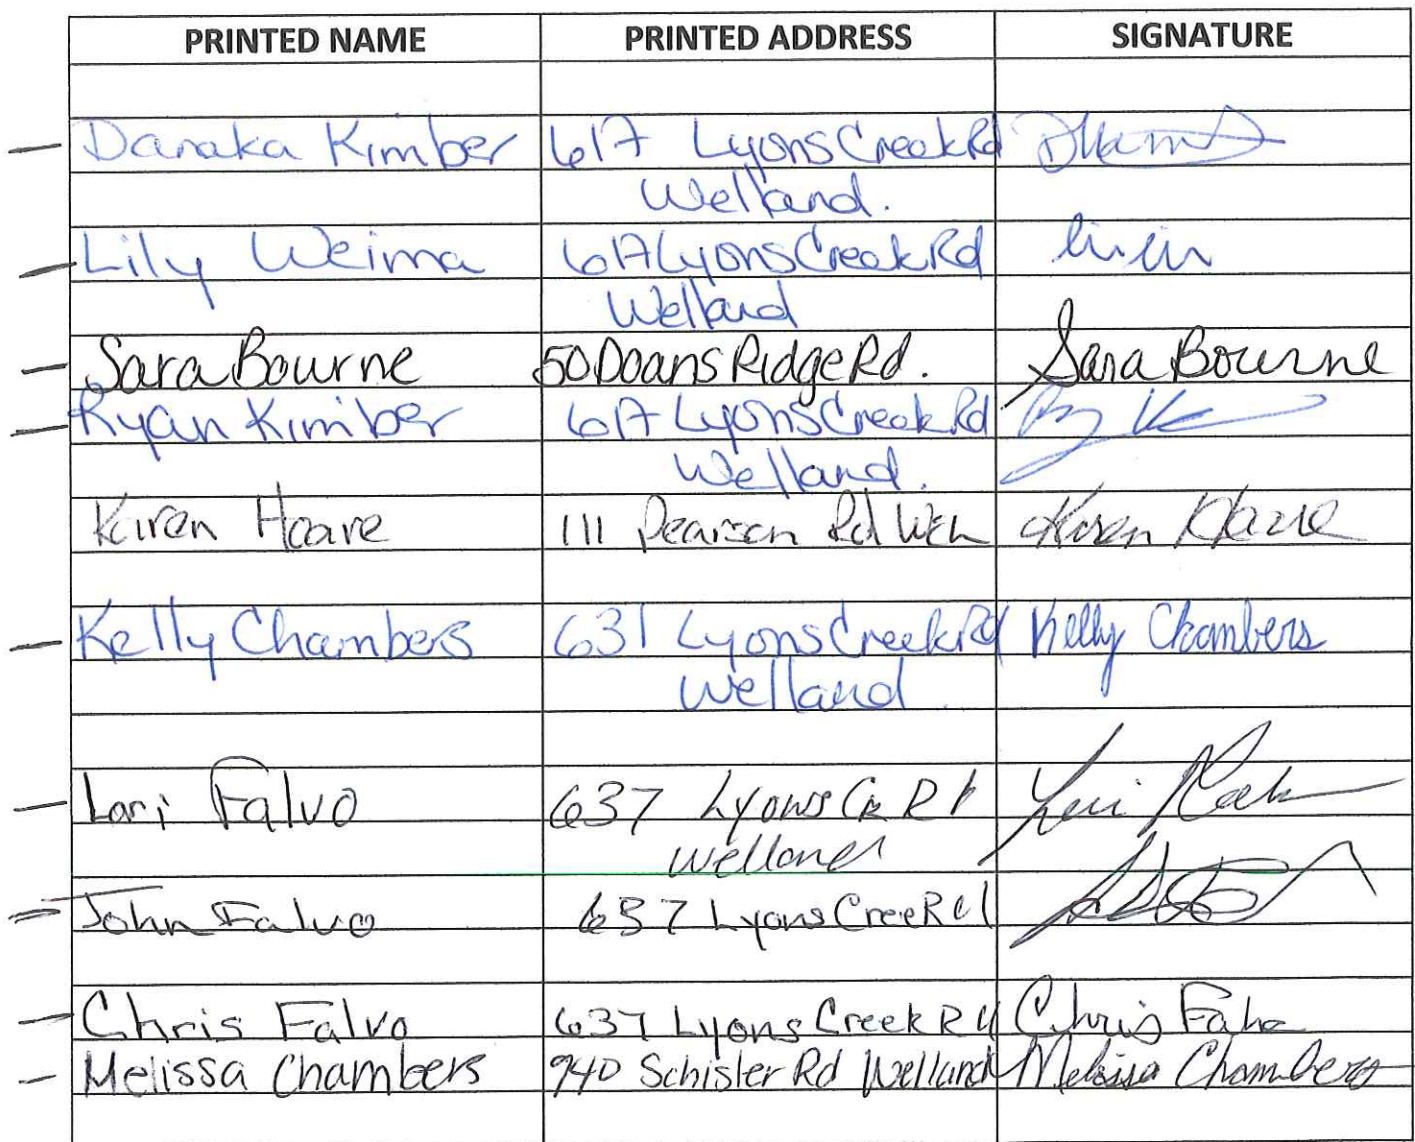 PRINTED NAME PRINTED ADDRESS SIGNATURE
Danaka Kimber 617 Lyons Creek Rd
Welland.
Lily Weima 617 Lyons Creek Rd
Welland
Sara Bourne 50 Doans Ridge Rd. Sara Bourne
Ryan Kimber 617 Lyons Creek Rd
Welland.
Karen Hoare 111 Pearson Rd Karen Hoare
Kelly Chambers 631 Lyons Creek Rd Kelly Chambers
Welland
Lori Falvo 637 Lyons Ck Rd
Welland
John Falvo 637 Lyons Cree Rd
Chris Falvo 637 Lyons Creek Rd Chris Falvo
Melissa Chambers 940 Schisler Rd Welland Melissa Chambers